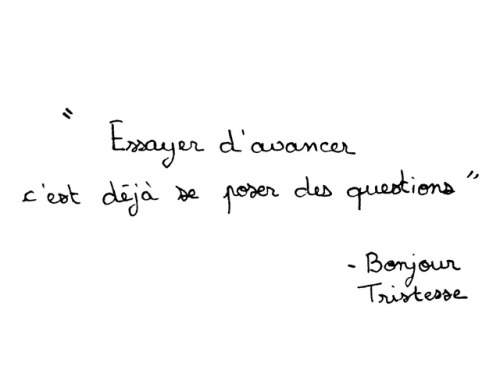 "
Essayer d'avancer
c'est déjà se poser des questions"
- Bonjour
Tristesse